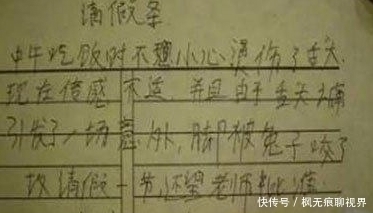 请假条
中午吃饭时不小心烫伤了舌头
现在倍感不适.并且由于舌头太痛
引发了一场意外,脚被兔子咬了
故请假一节还望老师批准
快传号/枫无痕聊视界